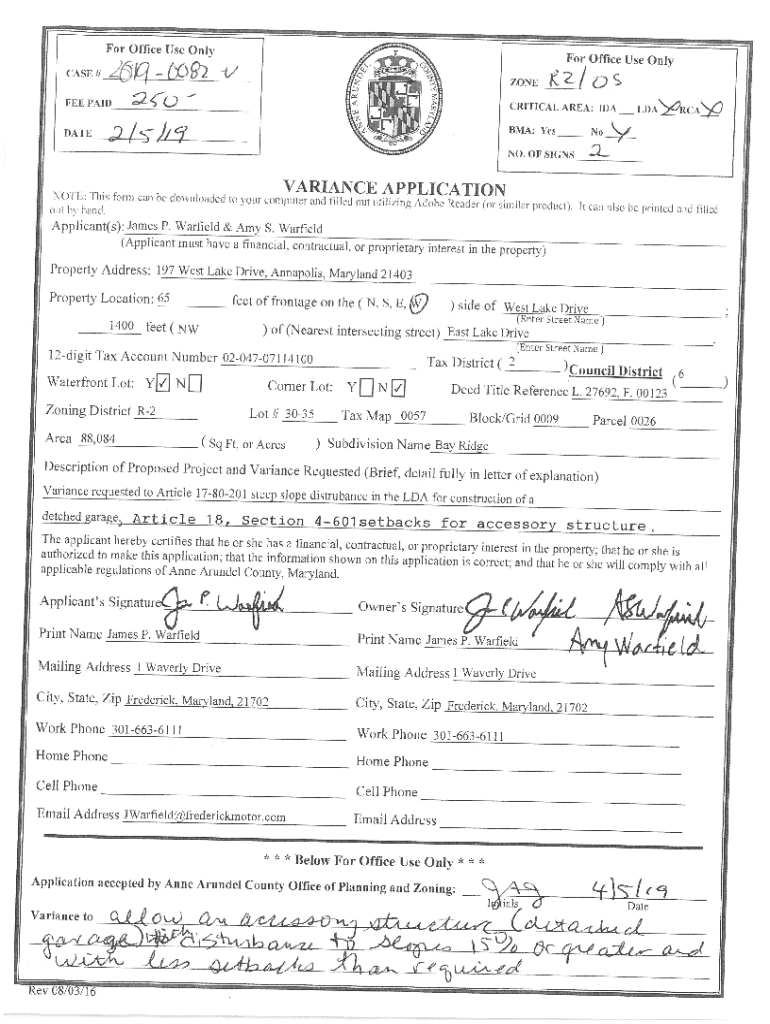 For Office Use Only
CASE # 2019-0082 V
FEE PAID 250-
DATE 2/5/19
ANNE ARUNDEL COUNTY MARYLAND
For Office Use Only
ZONE R2/OS
CRITICAL AREA: IDA LDA Y RCA Y
BMA: Yes No Y
NO. OF SIGNS 2
VARIANCE APPLICATION
NOTE: This form can be downloaded to your computer and filled out utilizing Adobe Reader (or similar product). It can also be printed and filled
out by hand.
Applicant(s): James P. Warfield & Amy S. Warfield
(Applicant must have a financial, contractual, or proprietary interest in the property)
Property Address: 197 West Lake Drive, Annapolis, Maryland 21403
Property Location: 65 feet of frontage on the ( N, S, E, W ) side of West Lake Drive ;
(Enter Street Name )
1400 feet ( NW ) of (Nearest intersecting street) East Lake Drive .
(Enter Street Name )
12-digit Tax Account Number 02-047-07114100 Tax District ( 2 ) Council District ( 6 )
Waterfront Lot: Y ✓ N Corner Lot: Y N ✓ Deed Title Reference L. 27692, F. 00123
Zoning District R-2 Lot # 30-35 Tax Map 0057 Block/Grid 0009 Parcel 0026
Area 88,084 ( Sq Ft, or Acres ) Subdivision Name Bay Ridge
Description of Proposed Project and Variance Requested (Brief, detail fully in letter of explanation)
Variance requested to Article 17-80-201 steep slope distrubance in the LDA for construction of a
detched garage, Article 18, Section 4-601setbacks for accessory structure.
The applicant hereby certifies that he or she has a financial, contractual, or proprietary interest in the property; that he or she is
authorized to make this application; that the information shown on this application is correct; and that he or she will comply with all
applicable regulations of Anne Arundel County, Maryland.
Applicant's Signature Owner's Signature
Print Name James P. Warfield Print Name James P. Warfield Amy Warfield
Mailing Address 1 Waverly Drive Mailing Address 1 Waverly Drive
City, State, Zip Frederick, Maryland, 21702 City, State, Zip Frederick, Maryland, 21702
Work Phone 301-663-6111 Work Phone 301-663-6111
Home Phone Home Phone
Cell Phone Cell Phone
Email Address JWarfield@frederickmotor.com Email Address
* * * Below For Office Use Only * * *
Application accepted by Anne Arundel County Office of Planning and Zoning: 4/5/19
Initials Date
Variance to allow an accessory structure (detached
garage) with disturbance to slopes 15% or greater and
with less setbacks than required
Rev 08/03/16